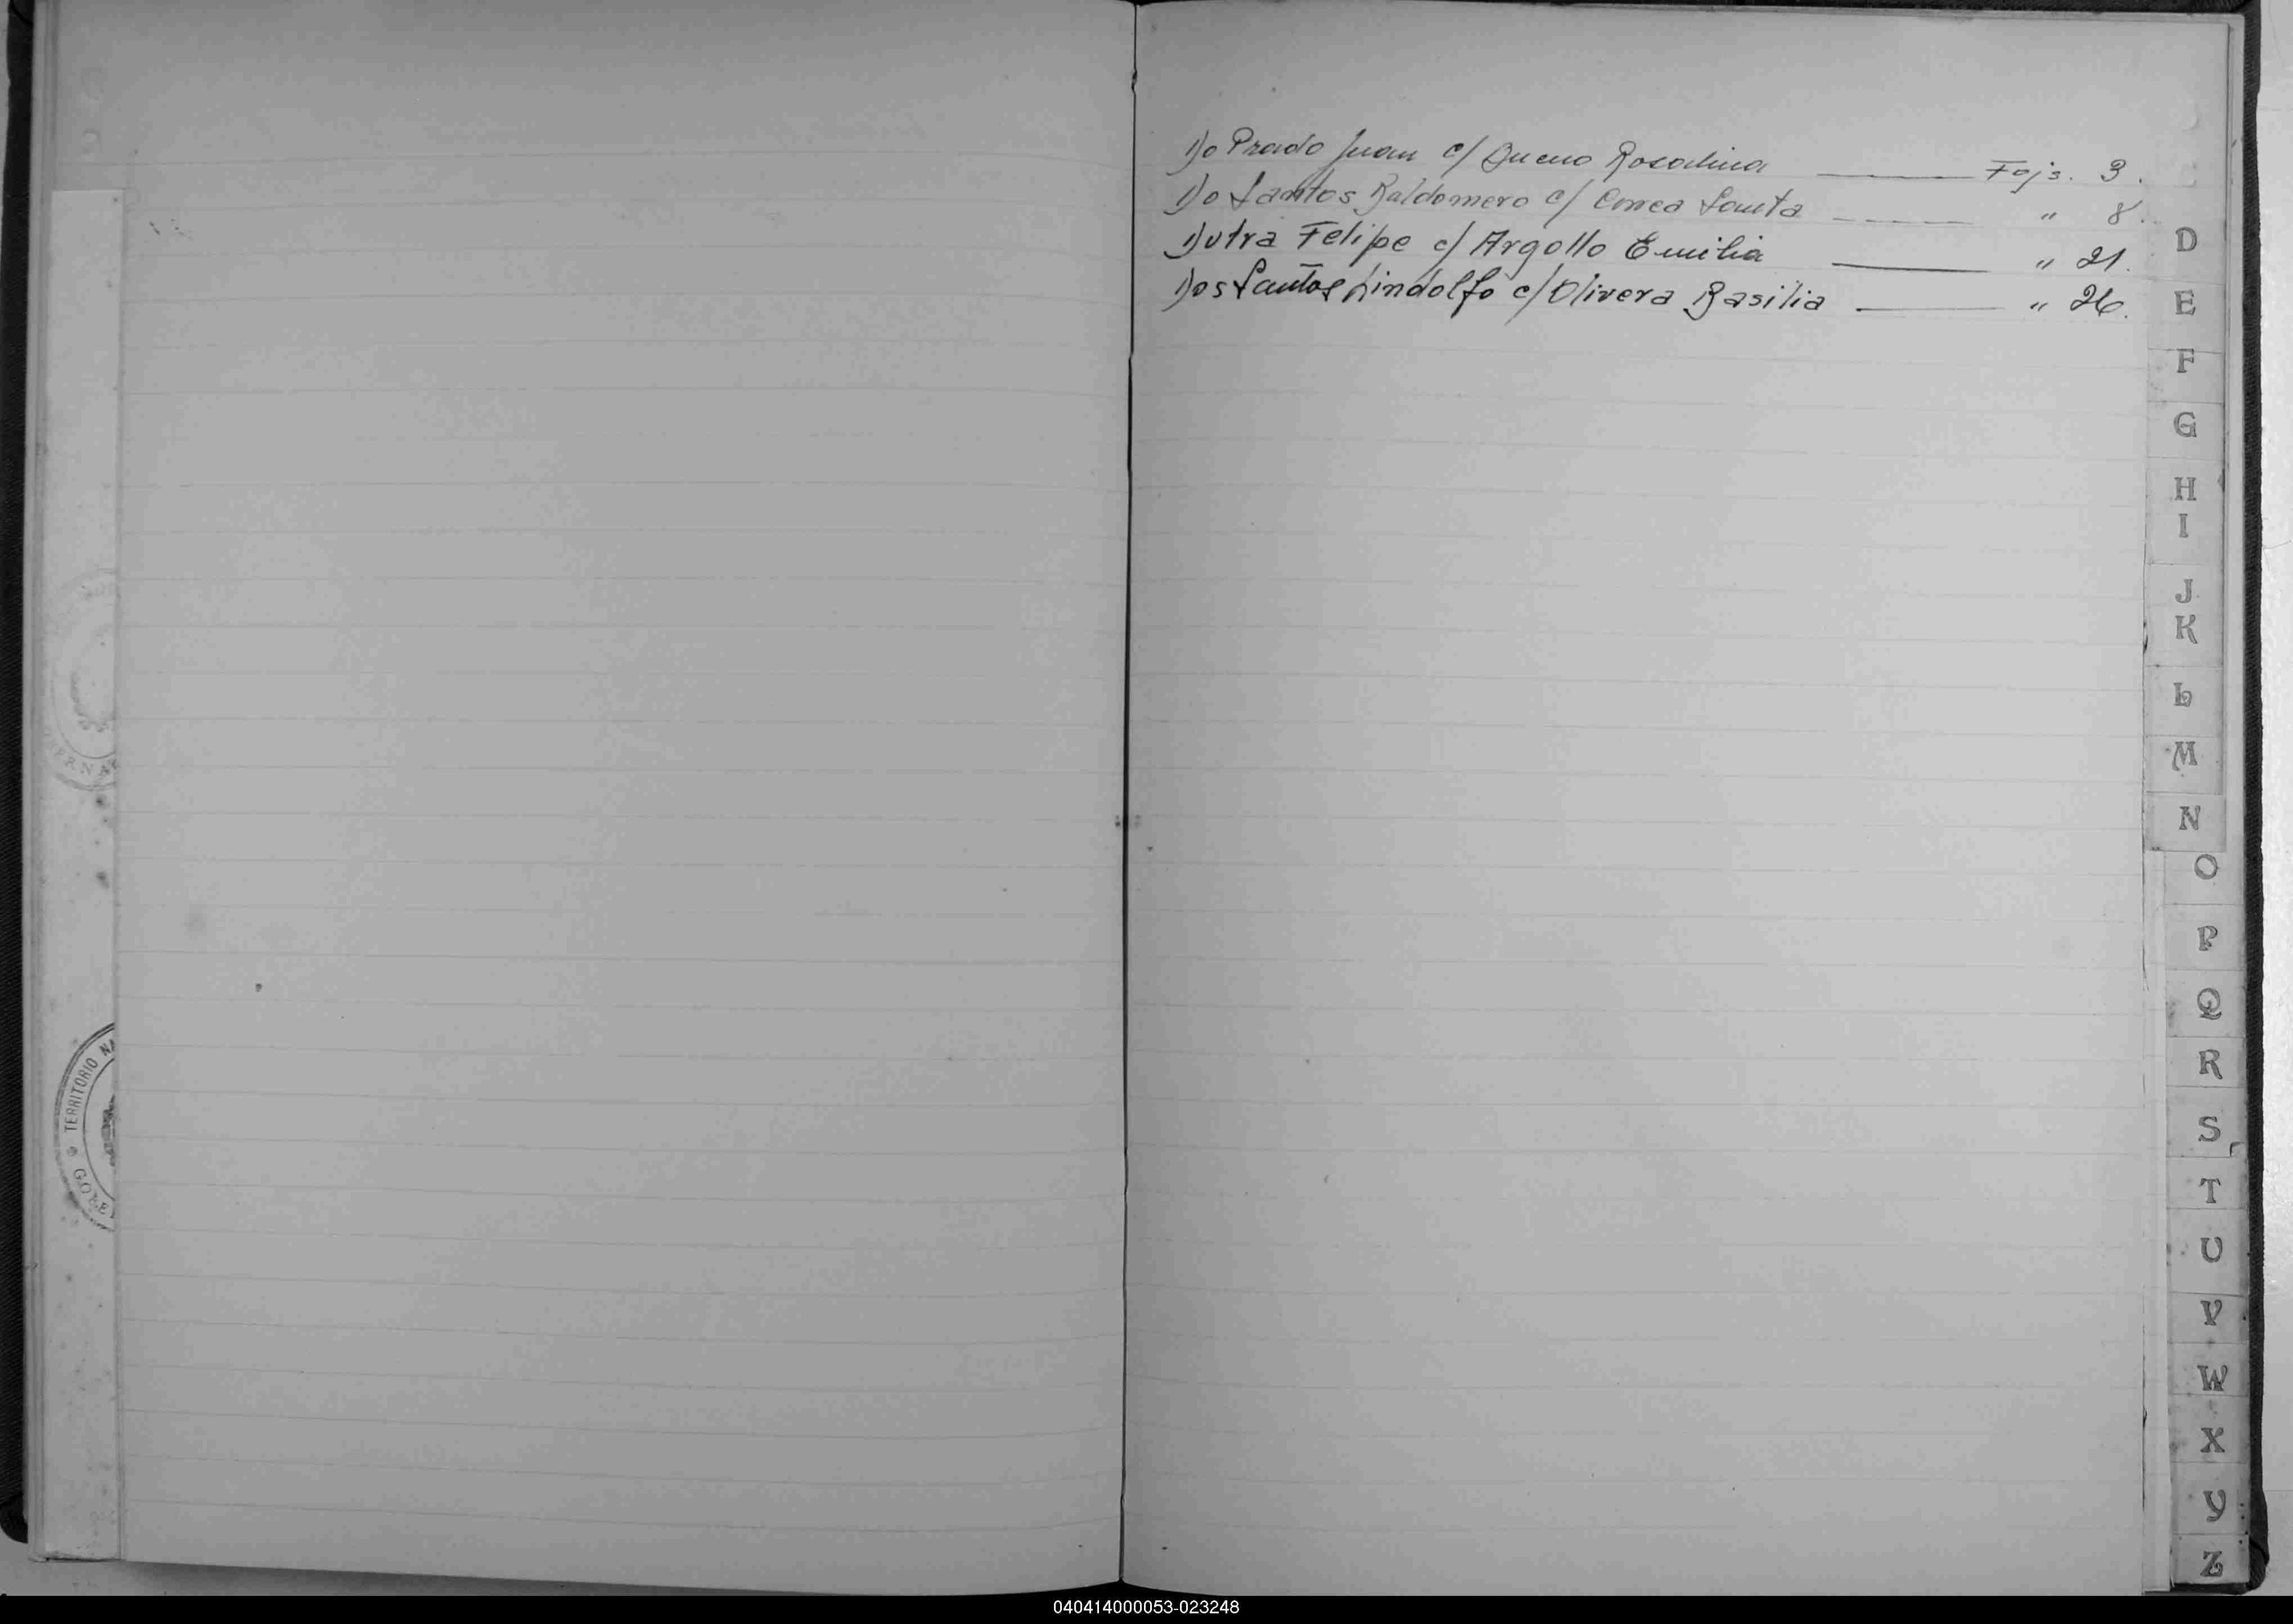 Do Prado Juan c/ Bueno Rosalina Fojs. 3.
Do Santos Baldomero c/ Correa Santa " 8.
Dutra Felipe c/ Argollo Emilia " 21.
Dos Santos Lindolfo c/ Olivera Basilia " 26.
D
E
F
G
H
I
J
K
L
M
N
O
P
Q
R
S
T
U
V
W
X
Y
Z
TERRITORIO NA
040414000053-023248